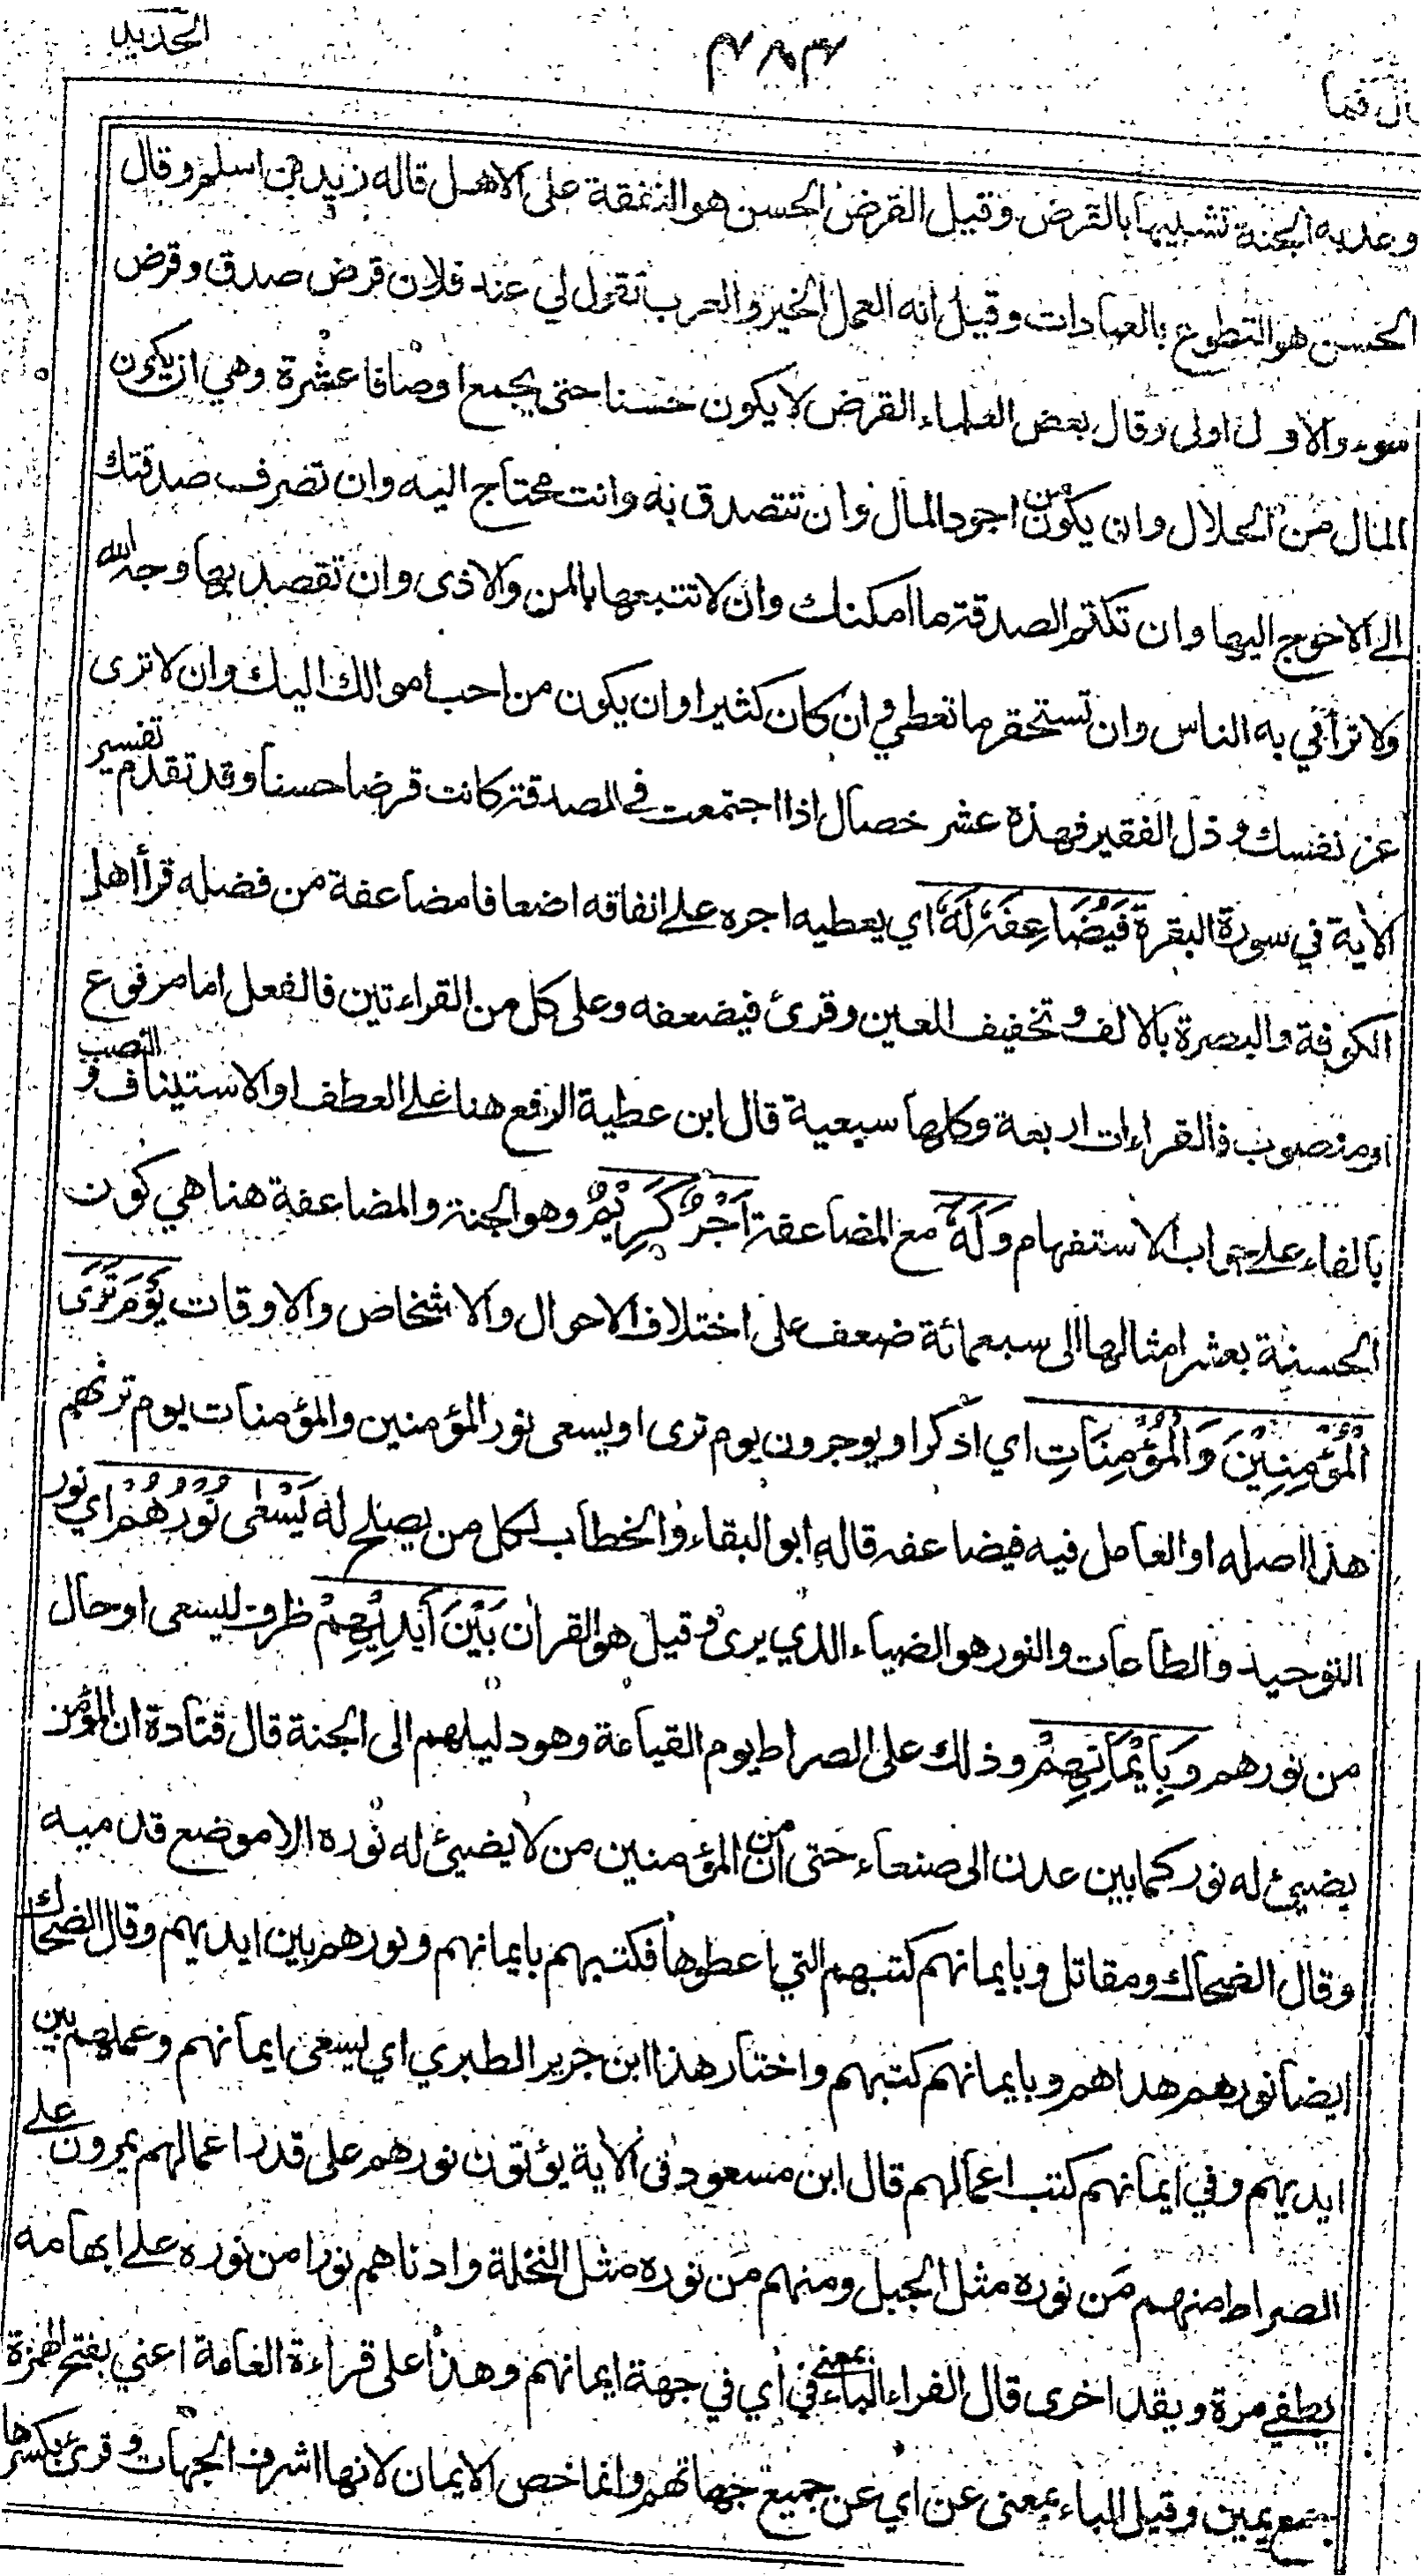 الحديد
٣٨٣
قال فما
وعد به الجنة تشبيها بالقرض وقيل القرض الحسن هو النفقة على الاهل قاله زيد بن اسلم وقال
الحسن هو التطوع بالعبادات وقيل انه العمل الخير والعرب تقول لي عند فلان قرض صدق وقرض
سوء والاول اولى وقال بعض العلماء القرض لا يكون حسنا حتى يجمع اوصافا عشرة وهي ان يكون
المال من الحلال وان يكون من اجود المال وان تتصدق به وانت محتاج اليه وان تصرف صدقتك
الى الاحوج اليها وان تكتم الصدقة ما امكنك وان لا تتبعها بالمن والاذى وان تقصد بها وجه الله
ولا ترائي به الناس وان تستحقر ما تعطي وان كان كثيرا وان يكون من احب اموالك اليك وان لا ترى
عز نفسك وذل الفقير فهذه عشر خصال اذا اجتمعت في الصدقة كانت قرضا حسنا وقد تقدم تفسير
الاية في سورة البقرة فَيُضَاعِفَهُ لَهٗ اي يعطيه اجره على انفاقه اضعافا مضاعفة من فضله قرأ اهل
الكوفة والبصرة بالالف وتخفيف العين وقرئ فيضعفه وعلى كل من القراءتين فالفعل اما مرفوع
او منصوب فالقراءات اربعة وكلها سبعية قال ابن عطية الرفع هنا على العطف او الاستيناف و النصب
بالفاء على جواب الاستفهام وَلَهٗ مع المضاعفة اَجْرٌ كَرِيْمٌ وهو الجنة والمضاعفة هنا هي كون
الحسنة بعشر امثالها الى سبعمائة ضعف على اختلاف الاحوال والاشخاص والاوقات يَوْمَ تَرَى
الْمُؤْمِنِيْنَ وَالْمُؤْمِنَاتِ اي اذكر او يوجرون يوم ترى او يسعى نور المؤمنين والمؤمنات يوم ترٰهم
هذا اصله او العامل فيه فيضاعفه قاله ابو البقاء والخطاب لكل من يصلح له يَسْعٰى نُوْرُهُمْ اي نور
التوحيد والطاعات والنور هو الضياء الذي يرى وقيل هو القرأن بَيْنَ اَيْدِيْهِمْ ظرف ليسعى او حال
من نورهم وَبِاَيْمَانِهِمْ وذلك على الصراط يوم القيامة وهو دليلهم الى الجنة قال قتادة ان المؤمن
يضيئ له نور كما بين عدن الى صنعاء حتى ان من المؤمنين من لا يضيئ له نوره الا موضع قدميه
وقال الضحاك ومقاتل وبايمانهم كتبهم التي اعطوها فكتبهم بايمانهم ونورهم بين ايديهم وقال الضحاك
ايضا نورهم هداهم وبايمانهم كتبهم واختار هذا ابن جرير الطبري اي يسعى ايمانهم وعملهم بين
ايديهم وفي ايمانهم كتب اعمالهم قال ابن مسعود في الاية يؤتون نورهم على قدر اعمالهم يمرون على
الصراط منهم من نوره مثل الجبل ومنهم من نوره مثل النخلة وادناهم نورا من نوره على ابهامه
يطفي مرة ويقد اخرى قال الفراء الباء بمعنى في اي في جهة ايمانهم وهذا على قراءة العامة اعني بفتح الهمزة
جمع يمين وقيل الباء بمعنى عن اي عن جميع جهاتهم وانما خص الايمان لانها اشرف الجهات وقرئ بكسرها